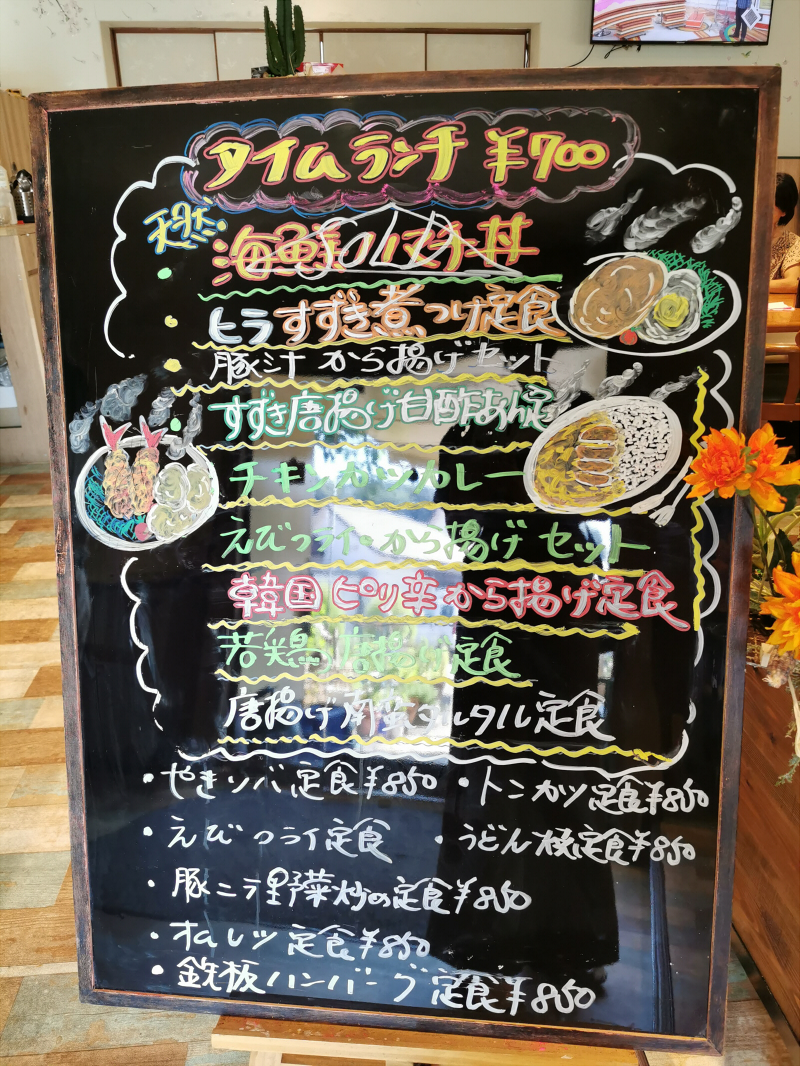 タイムランチ ¥700
天然
海鮮 ハマチ丼
SOLD
ヒラすずき煮つけ定食
豚汁 から揚げセット
すずき唐揚げ甘酢あん定
チキンカツカレー
えびフライ・から揚げ セット
韓国 ピリ辛 から揚げ定食
若鶏 唐揚げ定食
唐揚げ南蛮タルタル定食
・やきソバ定食¥850 ・トンカツ定食¥850
・えびフライ定食 ・うどん 定食¥850
・豚ニラ野菜炒め定食¥850
・オムレツ定食¥850
・鉄板ハンバーグ定食¥850